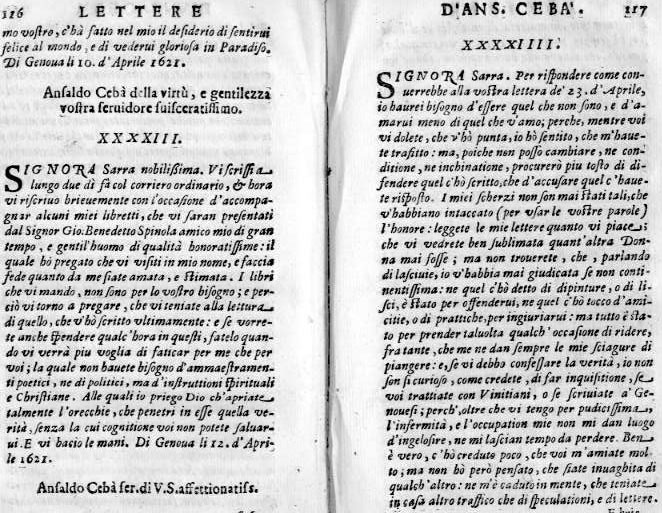 116 LETTERE
mo vostro, c'hà fatto nel mio il desiderio di sentirui
felice al mondo, e di vederui gloriosa in Paradiso.
Di Genoua li 10. d'Aprile 1621.
Ansaldo Cebà della virtù, e gentilezza
vostra seruidore suisceratissimo.
XXXXIII.
SIGNORA Sarra nobilissima. Vi scrissi a
lungo due dì fà col corriero ordinario, & hora
vi riscriuo brieuemente con l'occasione d'accompa-
gnar alcuni miei libretti, che vi saran presentati
dal Signor Gio: Benedetto Spinola amico mio di gran
tempo, e gentil'huomo di qualità honoratissime: il
quale hò pregato che vi visiti in mio nome, e faccia
fede quanto da me siate amata, e stimata. I libri
che vi mando, non sono per lo vostro bisogno; e per-
ciò vi torno a pregare, che vi teniate alla lettura
di quello, che v'hò scritto vltimamente: e se vorre-
te anche spendere qualc'hora in questi, fatelo quan-
do vi verrà piu voglia di faticar per me che per
voi; la quale non hauete bisogno d'ammaestramen-
ti poetici, ne di politici, ma d'instruttioni spirituali
e Christiane. Alle quali io priego Dio ch'apriate
talmente l'orecchie, che penetri in esse quella ve-
rità, senza la cui cognitione voi non potete saluar-
ui. E vi bacio le mani. Di Genoua li 12. d'Apri-
le 1621.
Ansaldo Cebà ser. di V.S. affettionatiss.
D'ANS. CEBA'. 117
XXXXIIII.
SIGNORA Sarra. Per rispondere come con-
uerrebbe alla vostra lettera de' 23. d'Aprile,
io haurei bisogno d'essere quel che non sono, e d'a-
marui meno di quel che v'amo; perche, mentre voi
vi dolete, che v'hò punta, io hò sentito, che m'haue-
te trafitto: ma, poiche non posso cambiare, ne con-
ditione, ne inchinatione, procurerò piu tosto di di-
fendere quel c'hò scritto, che d'accusare quel c'haue-
te risposto. I miei scherzi non son mai stati tali, che
v'habbiano intaccato (per vsar le vostre parole)
l'honore: leggete le mie lettere quanto vi piace;
che vi vedrete ben sublimata quant'altra Don-
na mai fosse; ma non trouerete, che, parlando
di lasciuie, io v'habbia mai giudicata se non conti-
nentissima: ne quel c'hò detto di dipinture, o di li-
sci, è stato per offenderui, ne quel c'hò tocco d'ami-
citie, o di prattiche, per ingiuriarui: ma tutto è sta-
to per prender taluolta qualch'occasione di ridere,
fra tante, che me ne dan sempre le mie sciagure di
piangere: e, se vi debbo confessare la verità, io non
son sì curioso, come credete, di far inquisitione, se
voi trattiate con Vinitiani, o se scriuiate a' Ge-
nouesi; perch', oltre che vi tengo per pudicissima,
l'infermità, e l'occupation mie non mi dan luogo
d'ingelosire, ne mi lascian tempo da perdere. Ben
è vero, c'hò creduto poco, che voi m'amiate mol-
to; ma non hò però pensato, che siate inuaghita di
qualch'altro: ne m'è caduto in mente, che teniate
in casa altro traffico che di speculationi, e di lettere.